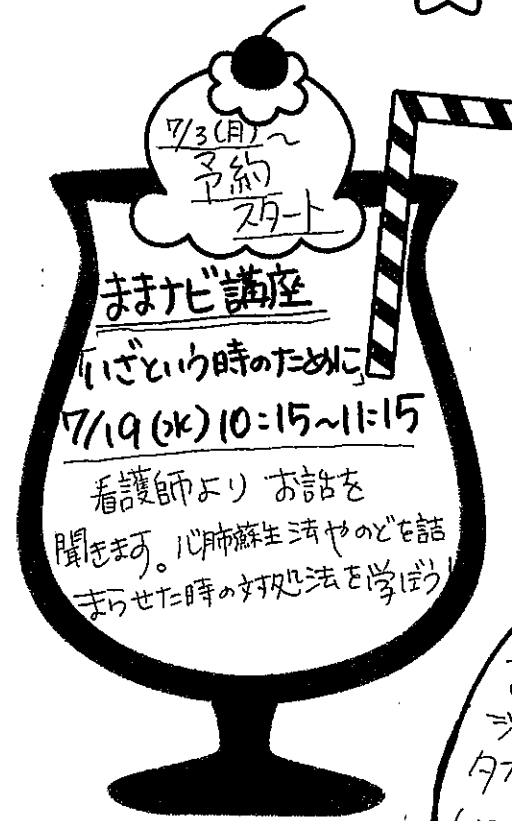 7/3(月)~
予約
スタート
ままナビ講座
「いざという時のために」
7/19(水)10:15~11:15
看護師より お話を
聞きます。心肺蘇生法やのどを詰
まらせた時の対処法を学ぼう!